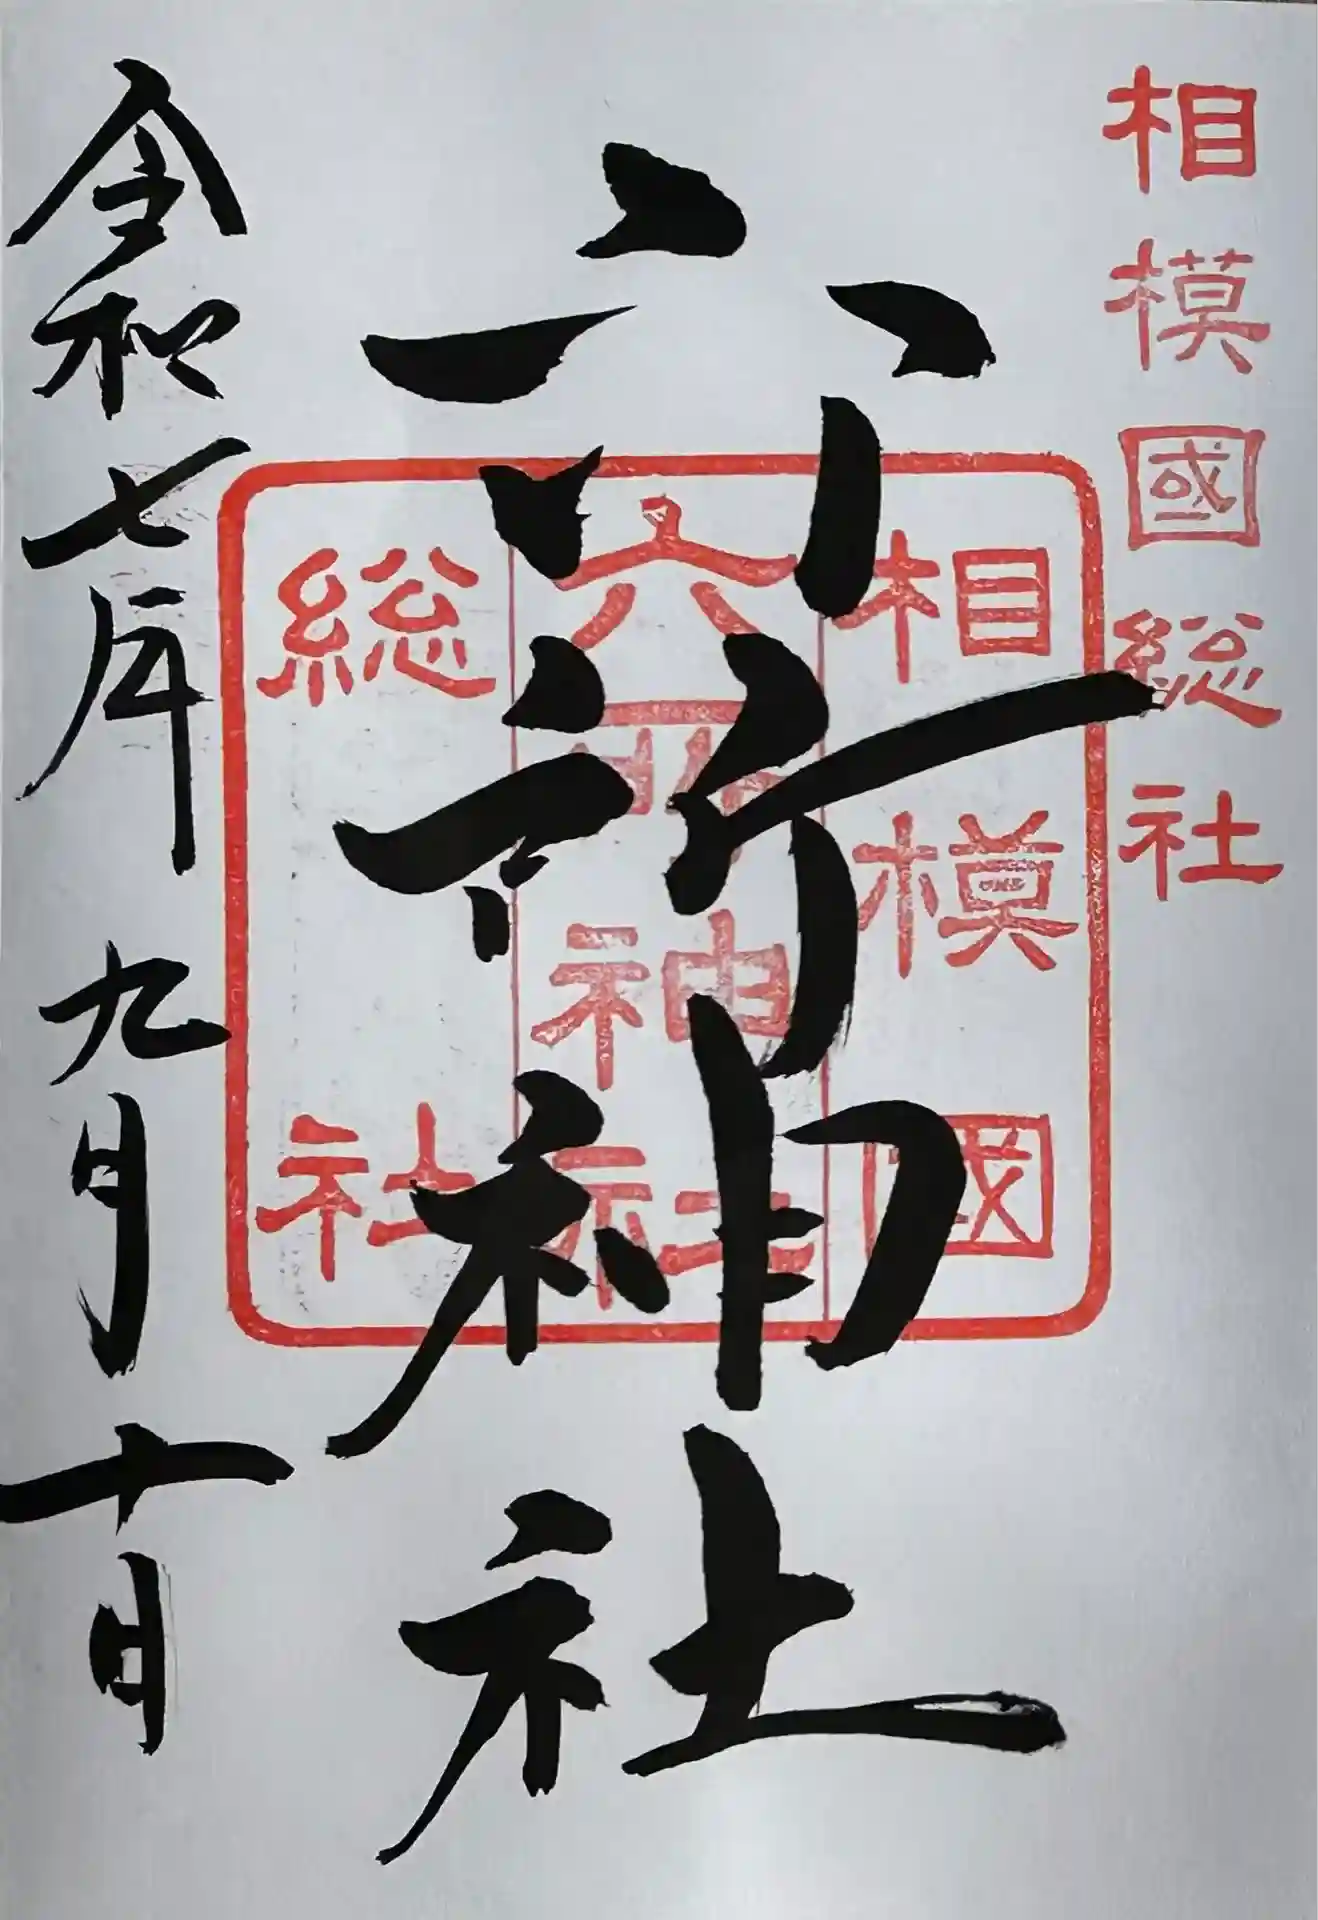 相模國総社
六所神社
相模國
六所神社
総社
令和七年九月十日